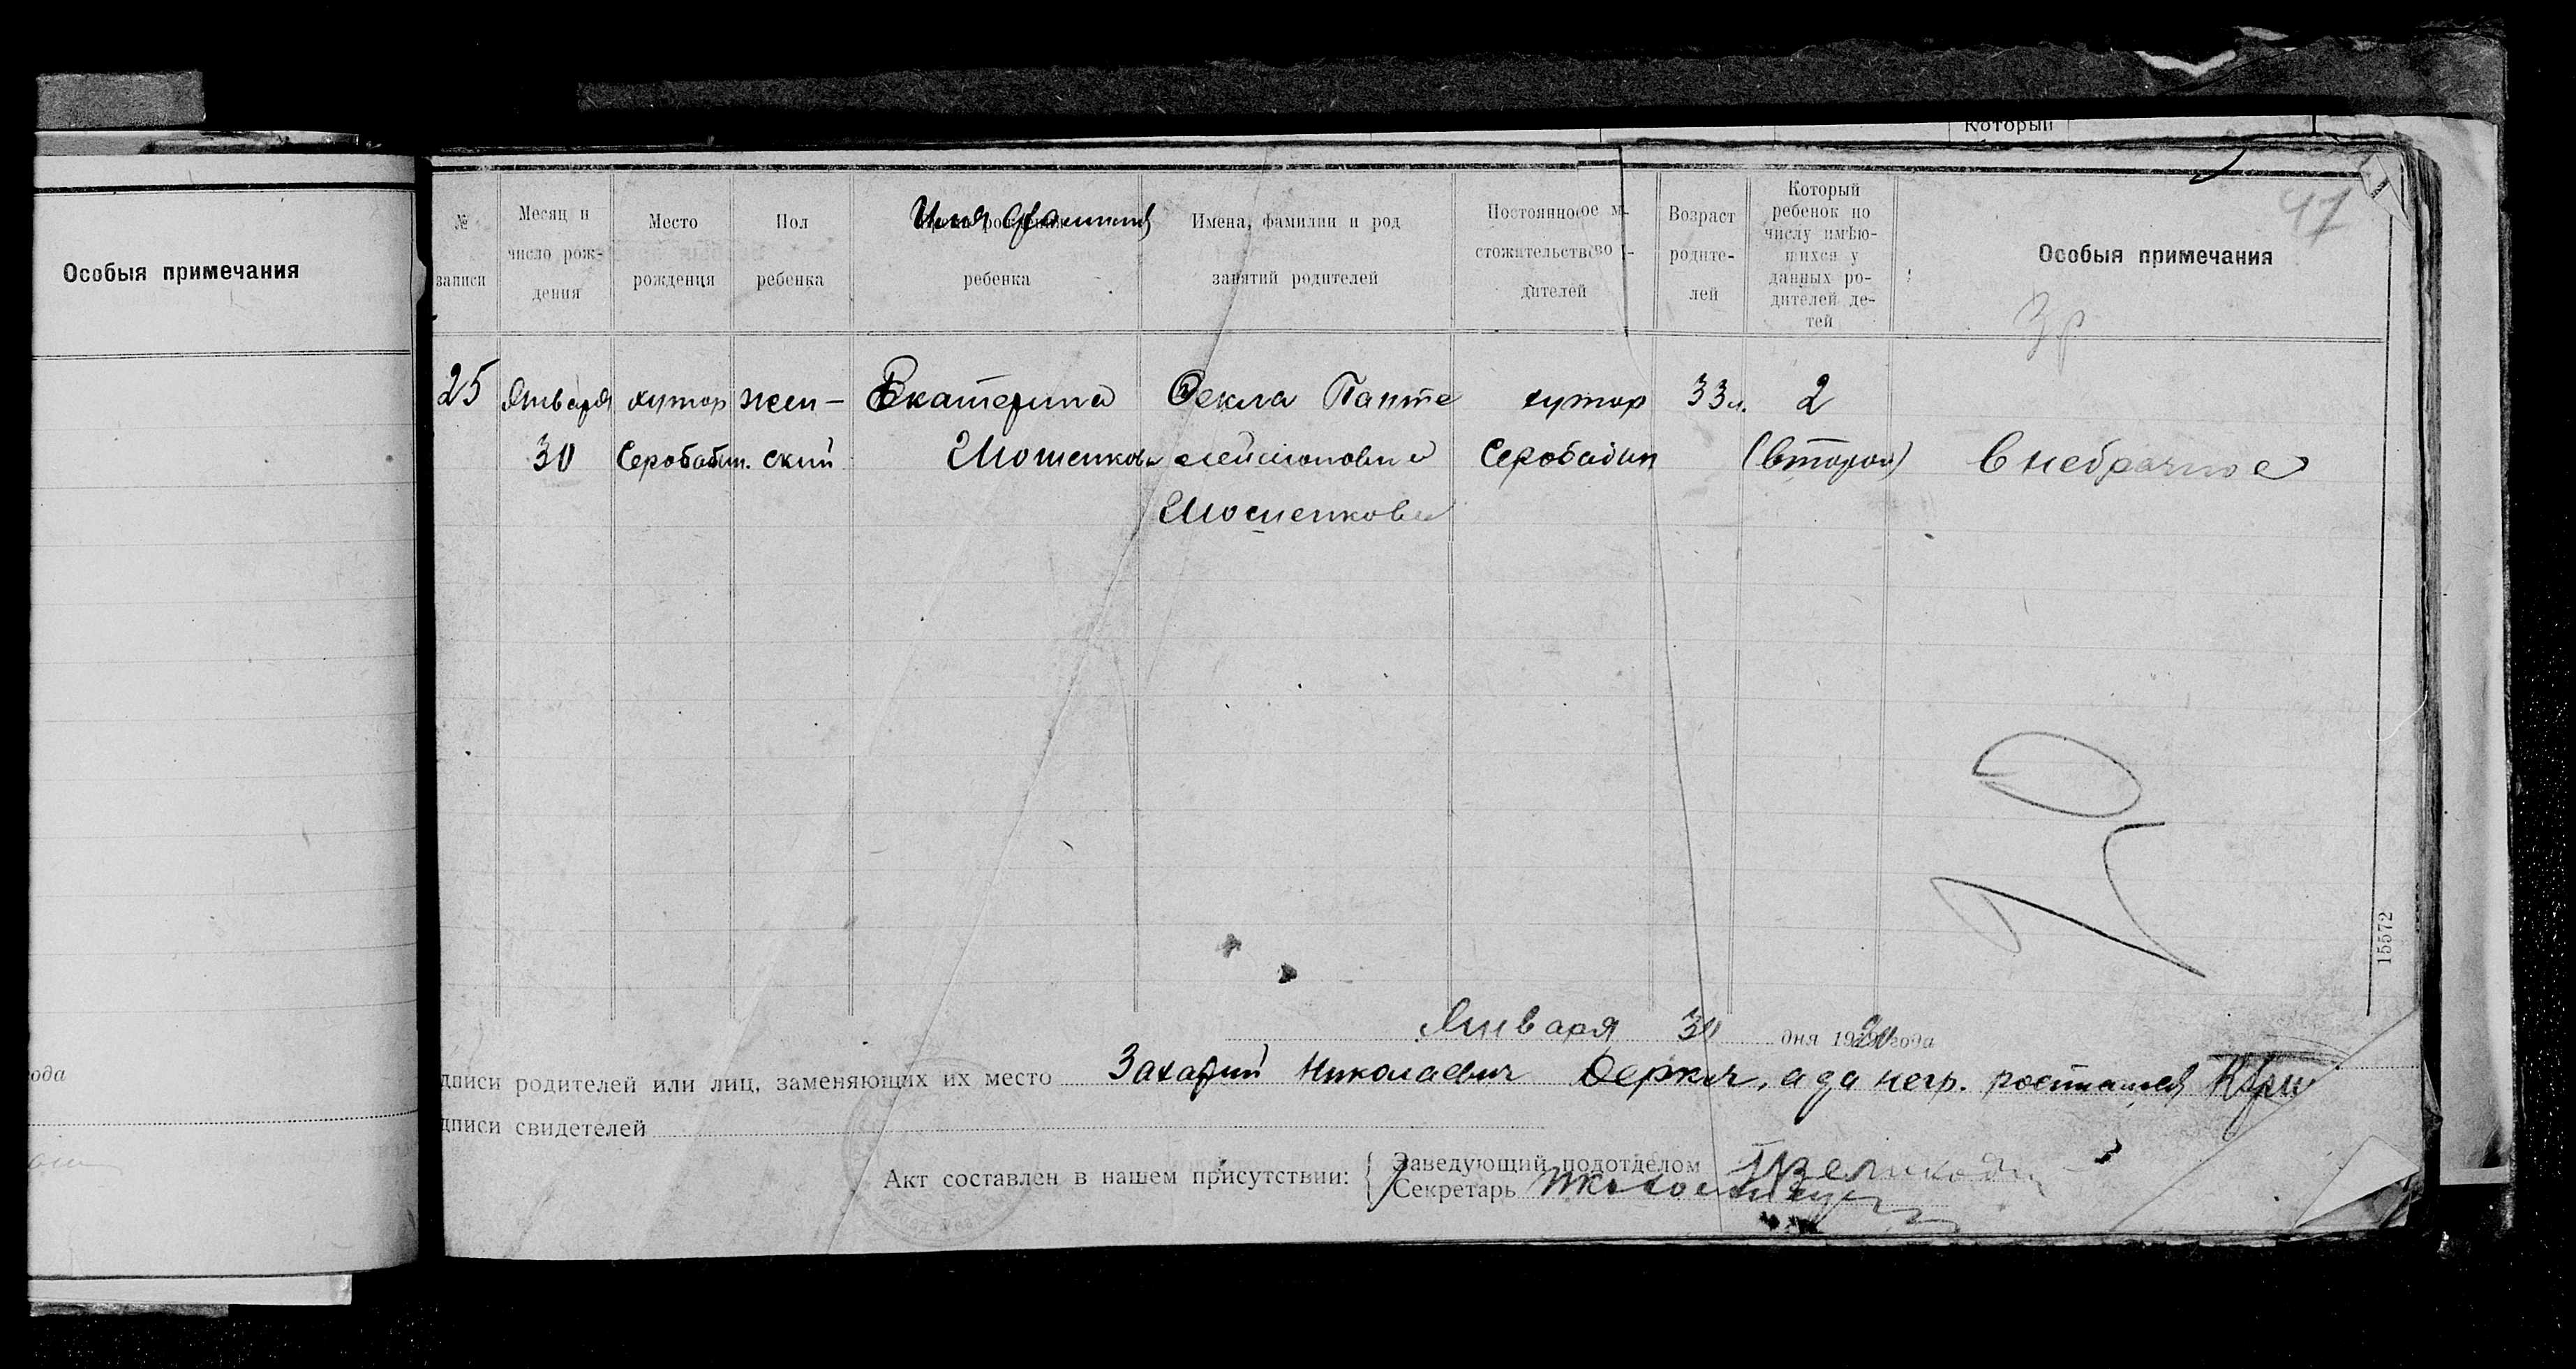 Который
Особыя примечания
47
№ записи
Месяц и число рождения
Место рождения
Пол ребенка
Имя фамилия ребенка
Имена, фамилии и род занятий родителей
Постоянное местожительство родителей
Возраст родителей
Который ребенок по числу имѣющихся у данных родителей детей
Особыя примечания
25 Января хутор жен- Екатерина Фекла Панте хутор 33 л. 2
30 Серобабин. ский Мошенкова леймоновна Серобабин (второй) Внебрачное
Мошенкова
20
15572
Января 30 дня 1920 года
ода
дписи родителей или лиц, заменяющих их место Захарий Николаевич Деркач, а за негр. ростался
дписи свидетелей
Акт составлен в нашем присутствии: Заведующий подотделом
Секретарь